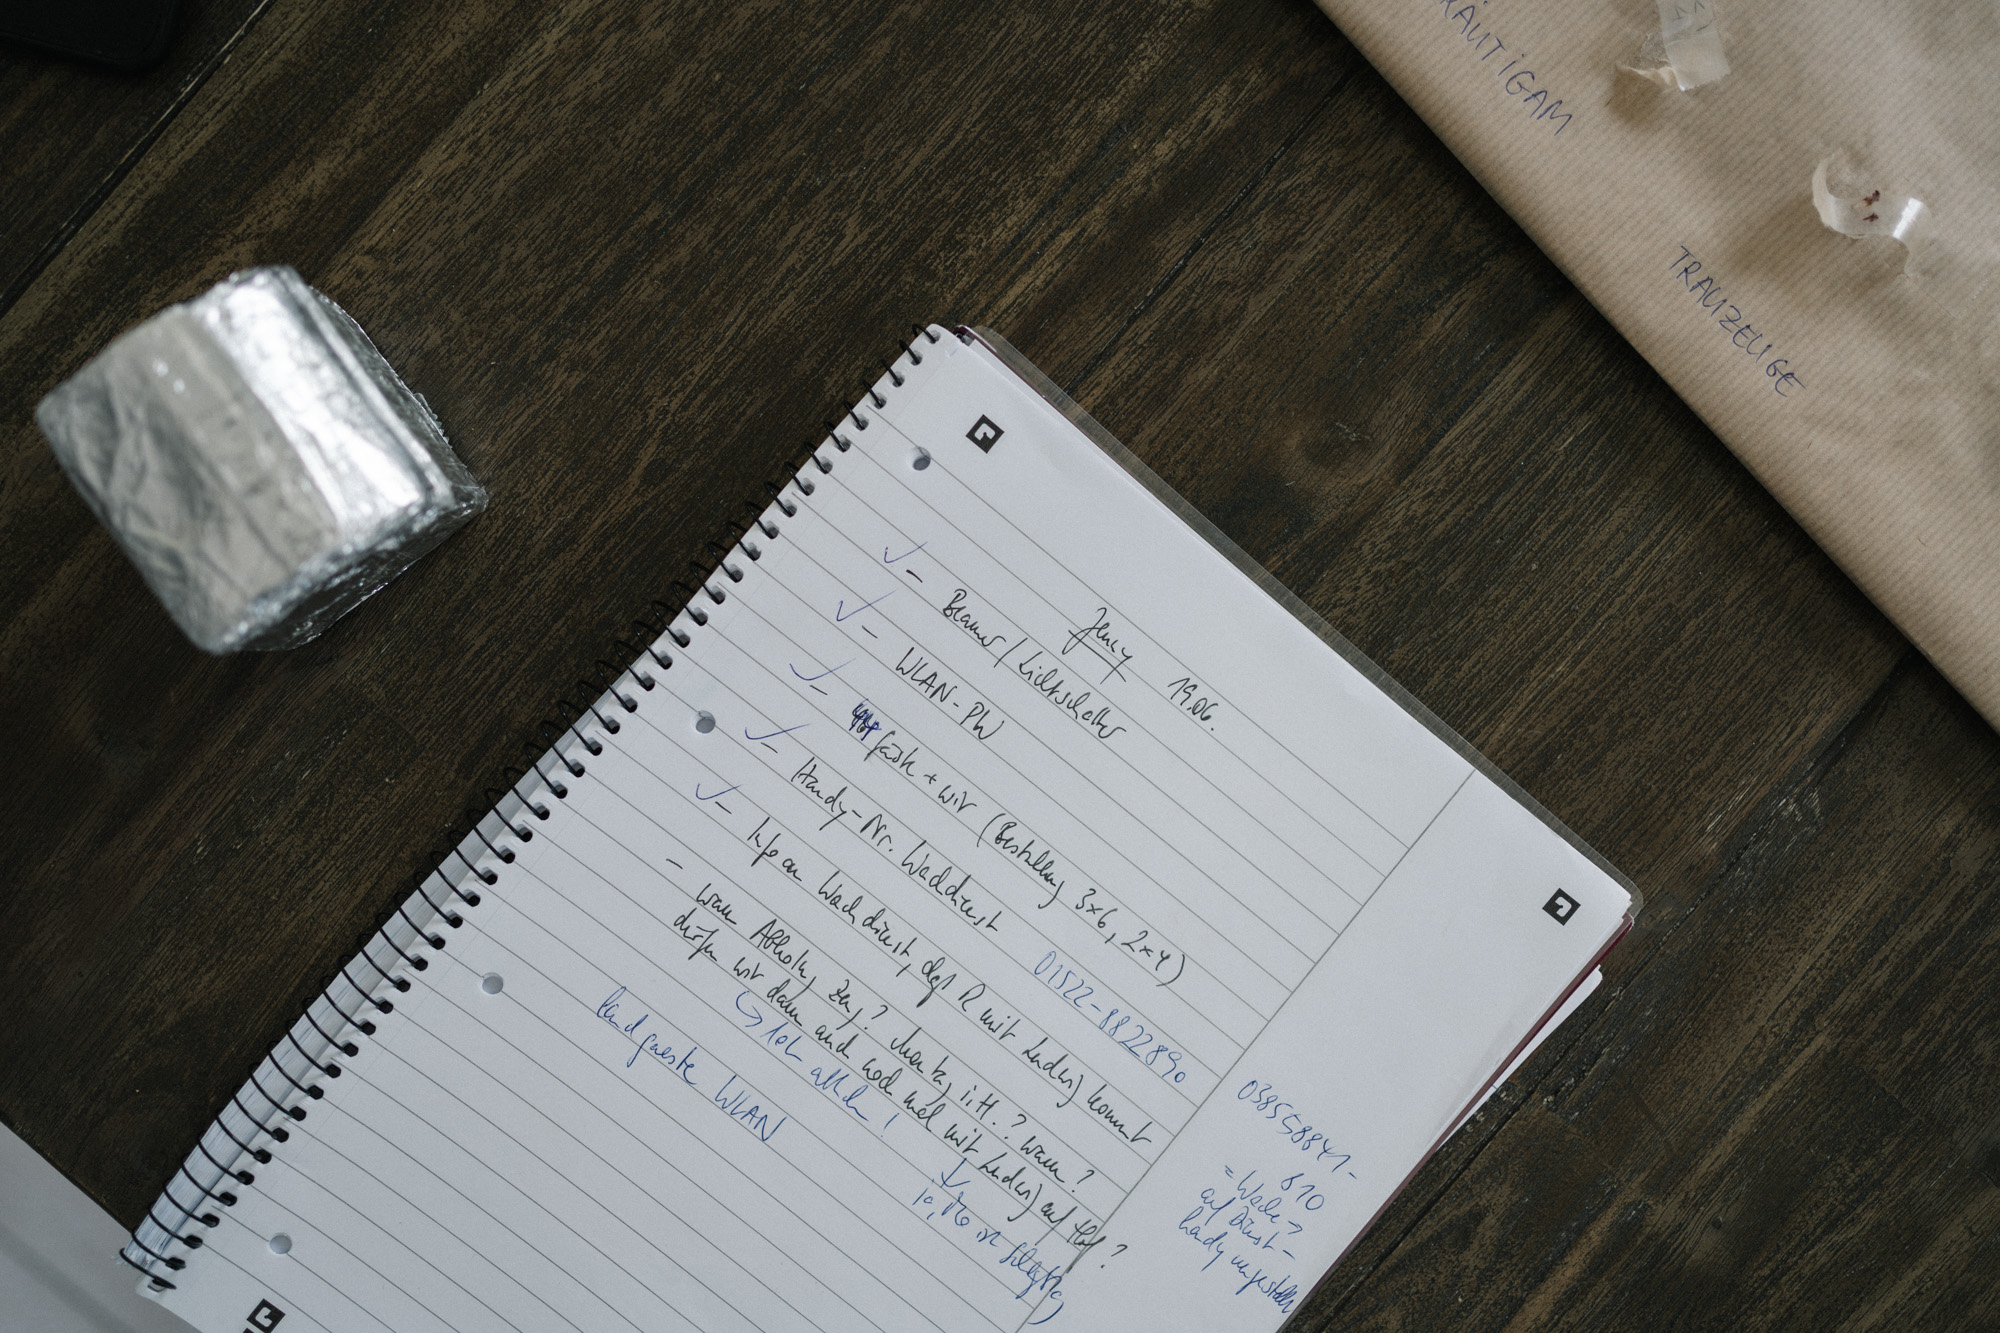 RÄUTIGAM
TRAUZEUGE
Jenny 19.06.
- Beamer / Lichtschalter
- WLAN-PW
+ wir (Bestellung 3x6, 2x4)
- Handy-Nr. Wachdienst 01522-8822890
- Info an Wachdienst, dass R mit kommt
- wann Abholung ? Montag i.H.? wann?
dürfen wir dann auch noch mal mit auf Hof?
!
ja, Mo
Landgaeste WLAN
038558841-
610
= Wache →
auf Dienst-
handy umgestellt